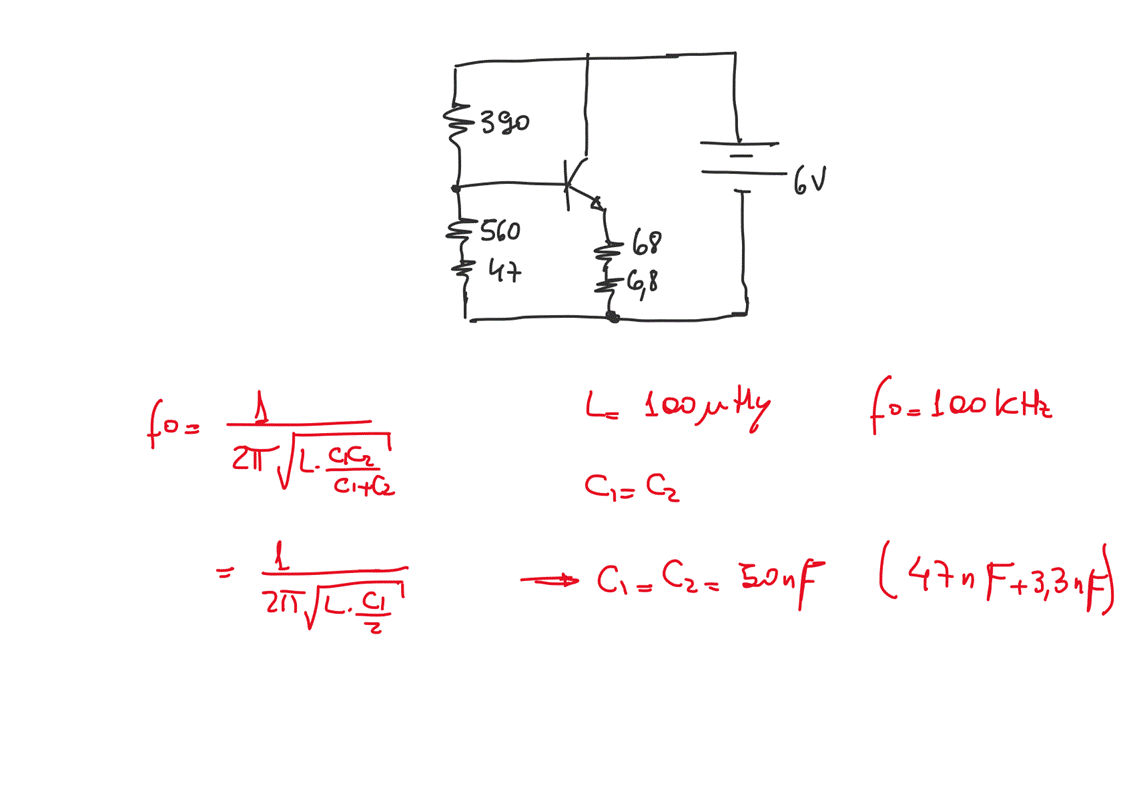 390
560
47
68
6,8
6V
f0 = 1 / 2π√(L · C1C2 / C1+C2)
L = 100 μHy
f0 = 100 kHz
C1 = C2
= 1 / 2π√(L · C1 / 2)
→ C1 = C2 = 50nF (47nF + 3,3nF)